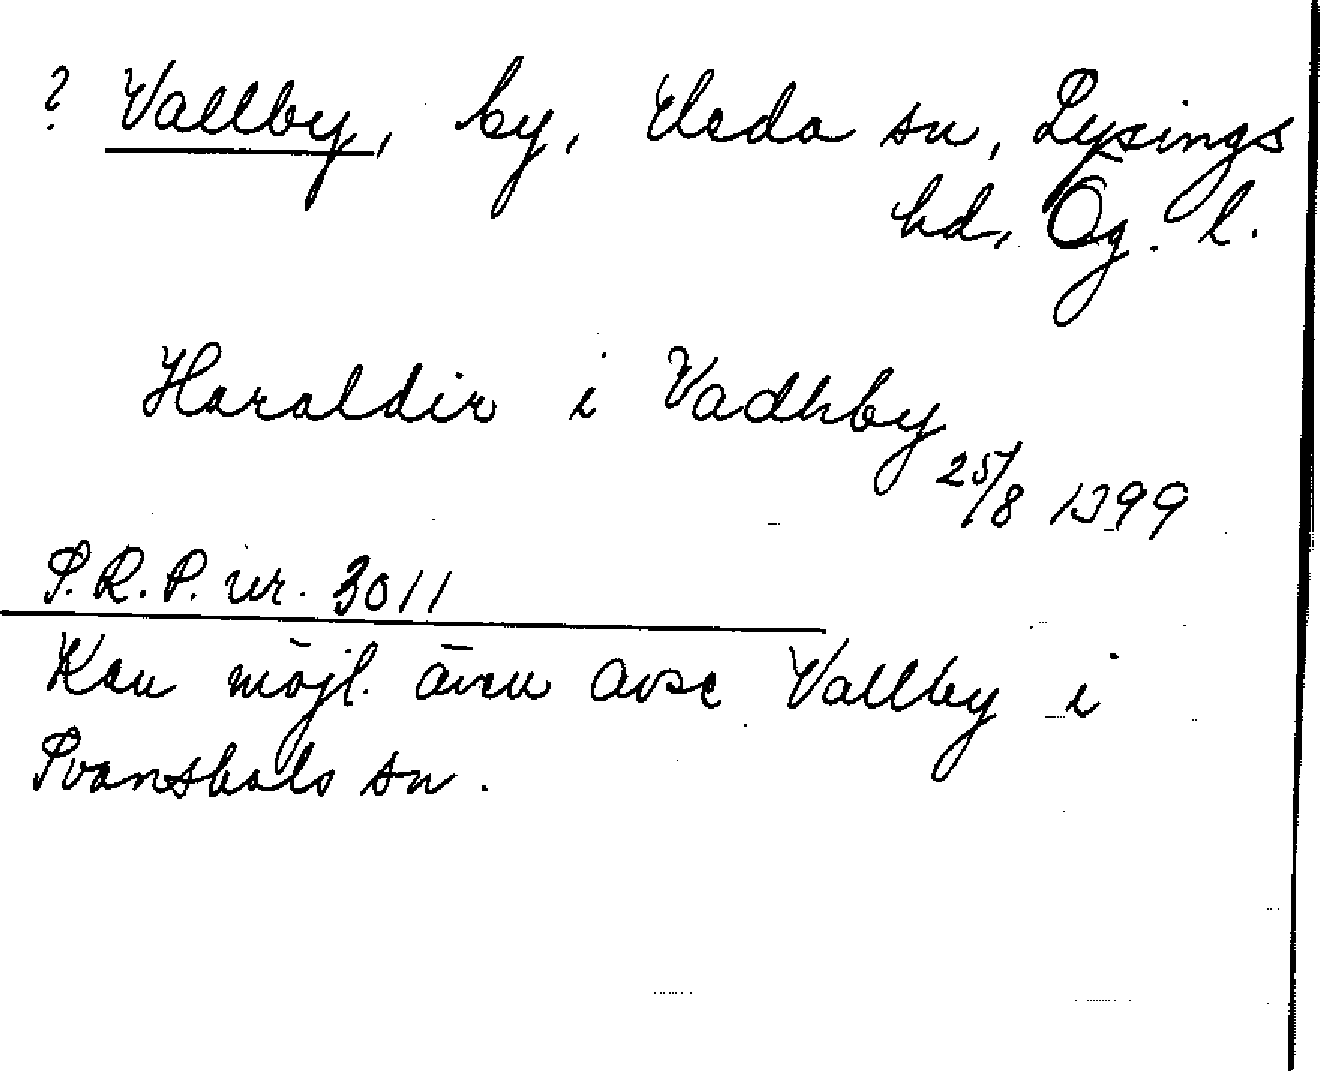 ? Vallby, by, Heda sn, Lysings
hd, Ög. l.
Haraldir i Vadhby
25/8 1399
S.R.P. nr. 3011
Kan möjl. även avse Vallby i
Svanshals sn.